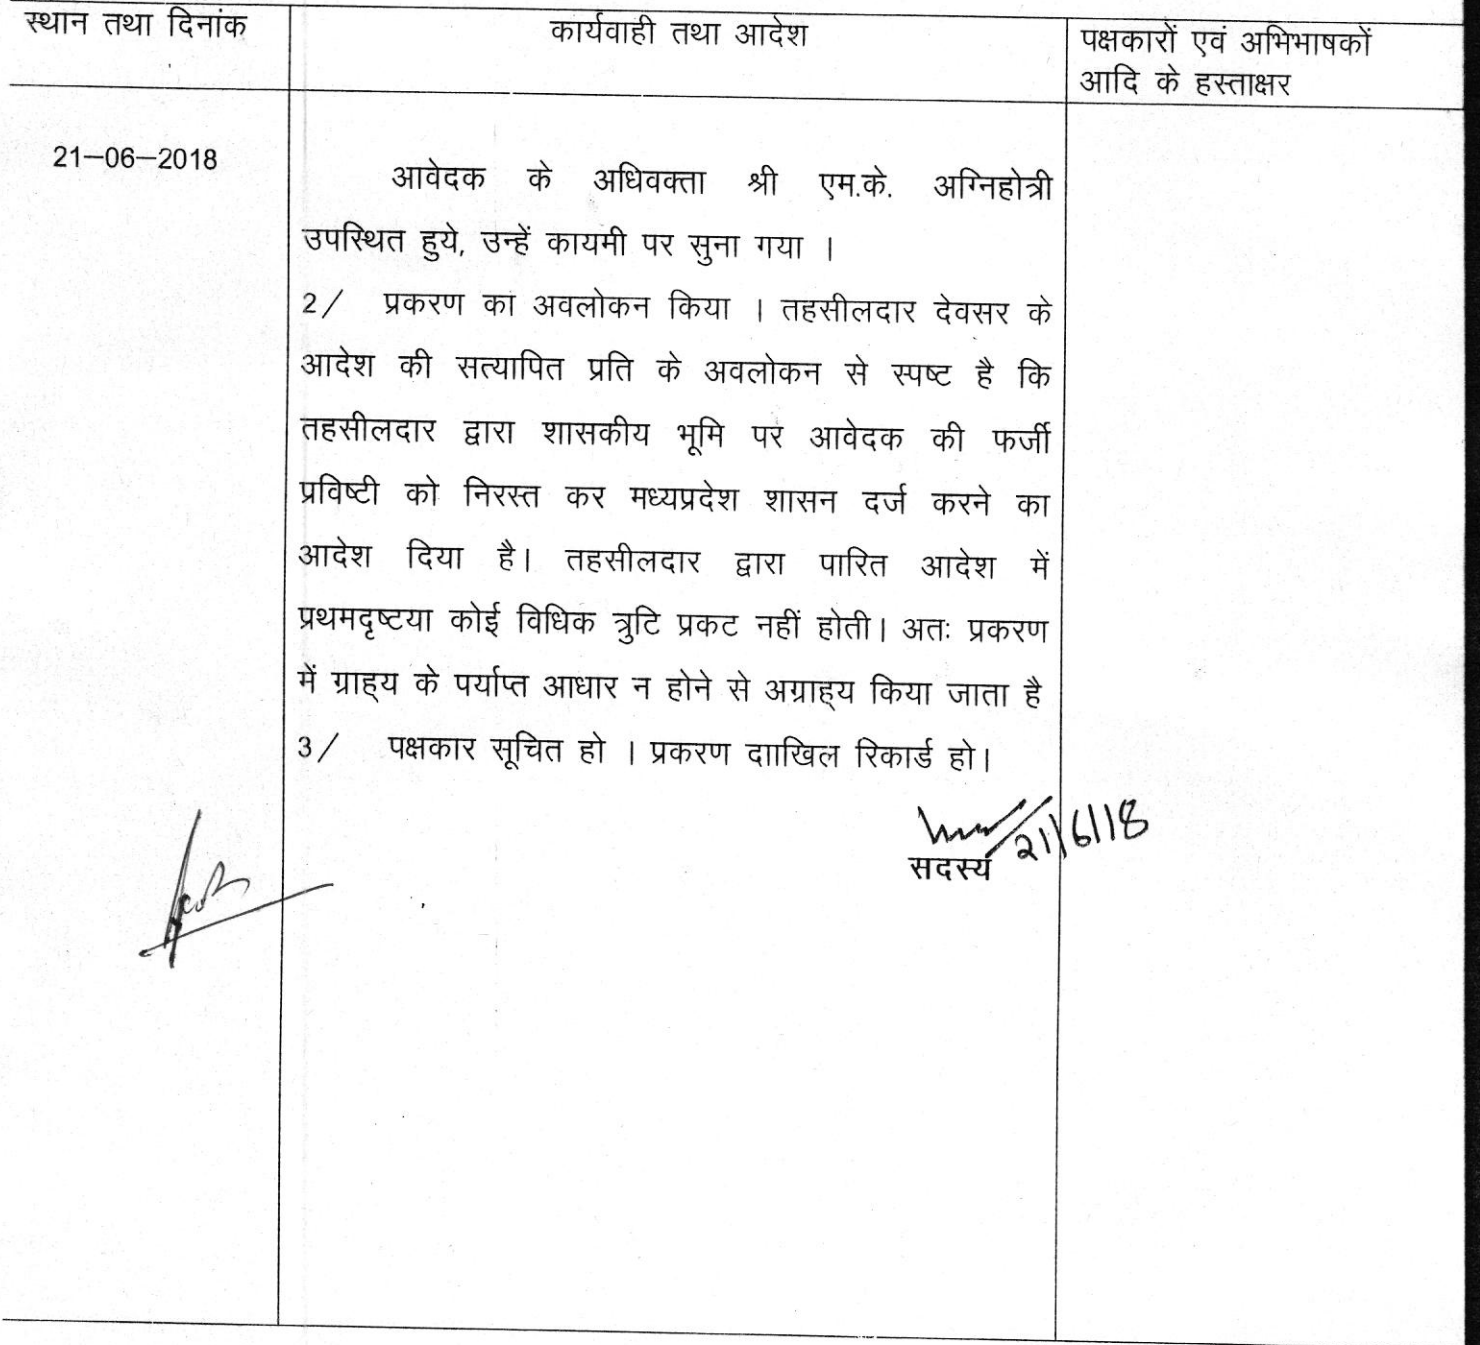 स्थान तथा दिनांक
कार्यवाही तथा आदेश
पक्षकारों एवं अभिभाषकों
आदि के हस्ताक्षर
21–06–2018
आवेदक के अधिवक्ता श्री एम.के. अग्निहोत्री
उपस्थित हुये, उन्हें कायमी पर सुना गया ।
2/ प्रकरण का अवलोकन किया । तहसीलदार देवसर के
आदेश की सत्यापित प्रति के अवलोकन से स्पष्ट है कि
तहसीलदार द्वारा शासकीय भूमि पर आवेदक की फर्जी
प्रविष्टी को निरस्त कर मध्यप्रदेश शासन दर्ज करने का
आदेश दिया है। तहसीलदार द्वारा पारित आदेश में
प्रथमदृष्टया कोई विधिक त्रुटि प्रकट नहीं होती। अतः प्रकरण
में ग्राह्य के पर्याप्त आधार न होने से अग्राह्य किया जाता है
3/ पक्षकार सूचित हो । प्रकरण दााखिल रिकार्ड हो।
21/6/18
सदस्य